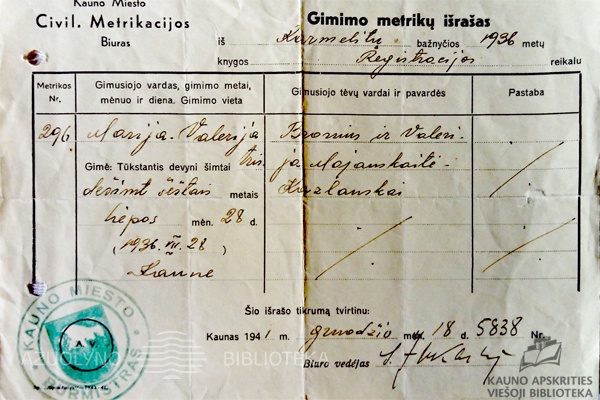 Kauno Miesto
Civil. Metrikacijos
Biuras
Gimimo metrikų išrašas
iš Karmelitų bažnyčios 1936 metų
knygos Registracijos reikalu
Metrikos Nr.
Gimusiojo vardas, gimimo metai, mėnuo ir diena. Gimimo vieta
Gimusiojo tėvų vardai ir pavardės
Pastaba
296 Marija-Valerija
Gimė: Tūkstantis devyni šimtai tris
dešimt šeštais metais
liepos mėn. 28 d.
(1936. VII. 28)
Kaune
Bronius ir Valeri-
ja Majauskaitė-
Kazlauskai
Šio išrašo tikrumą tvirtinu:
Kaunas 1941 m. gruodžio mėn. 18 d. 5838 Nr.
Biuro vedėjas
KAUNO MIESTO
BURMISTRAS
A. V.
AZUOLYNO BIBLIOTEKA
KAUNO APSKRITIES
VIEŠOJI BIBLIOTEKA